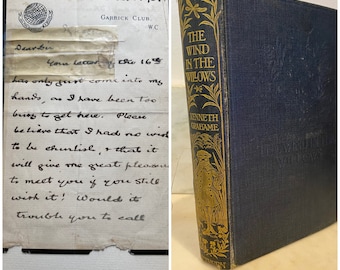 GARRICK CLUB,
W.C.
Dear Sir
Your letter of the 16th
has only just come into my
hands, as I have been too
busy to get here. Please
believe that I had no wish
to be churlish, & that it
will give me great pleasure
to meet you if you still
wish it! Would it
trouble you to call
THE
WIND
IN THE
WILLOWS
KENNETH
GRAHAME